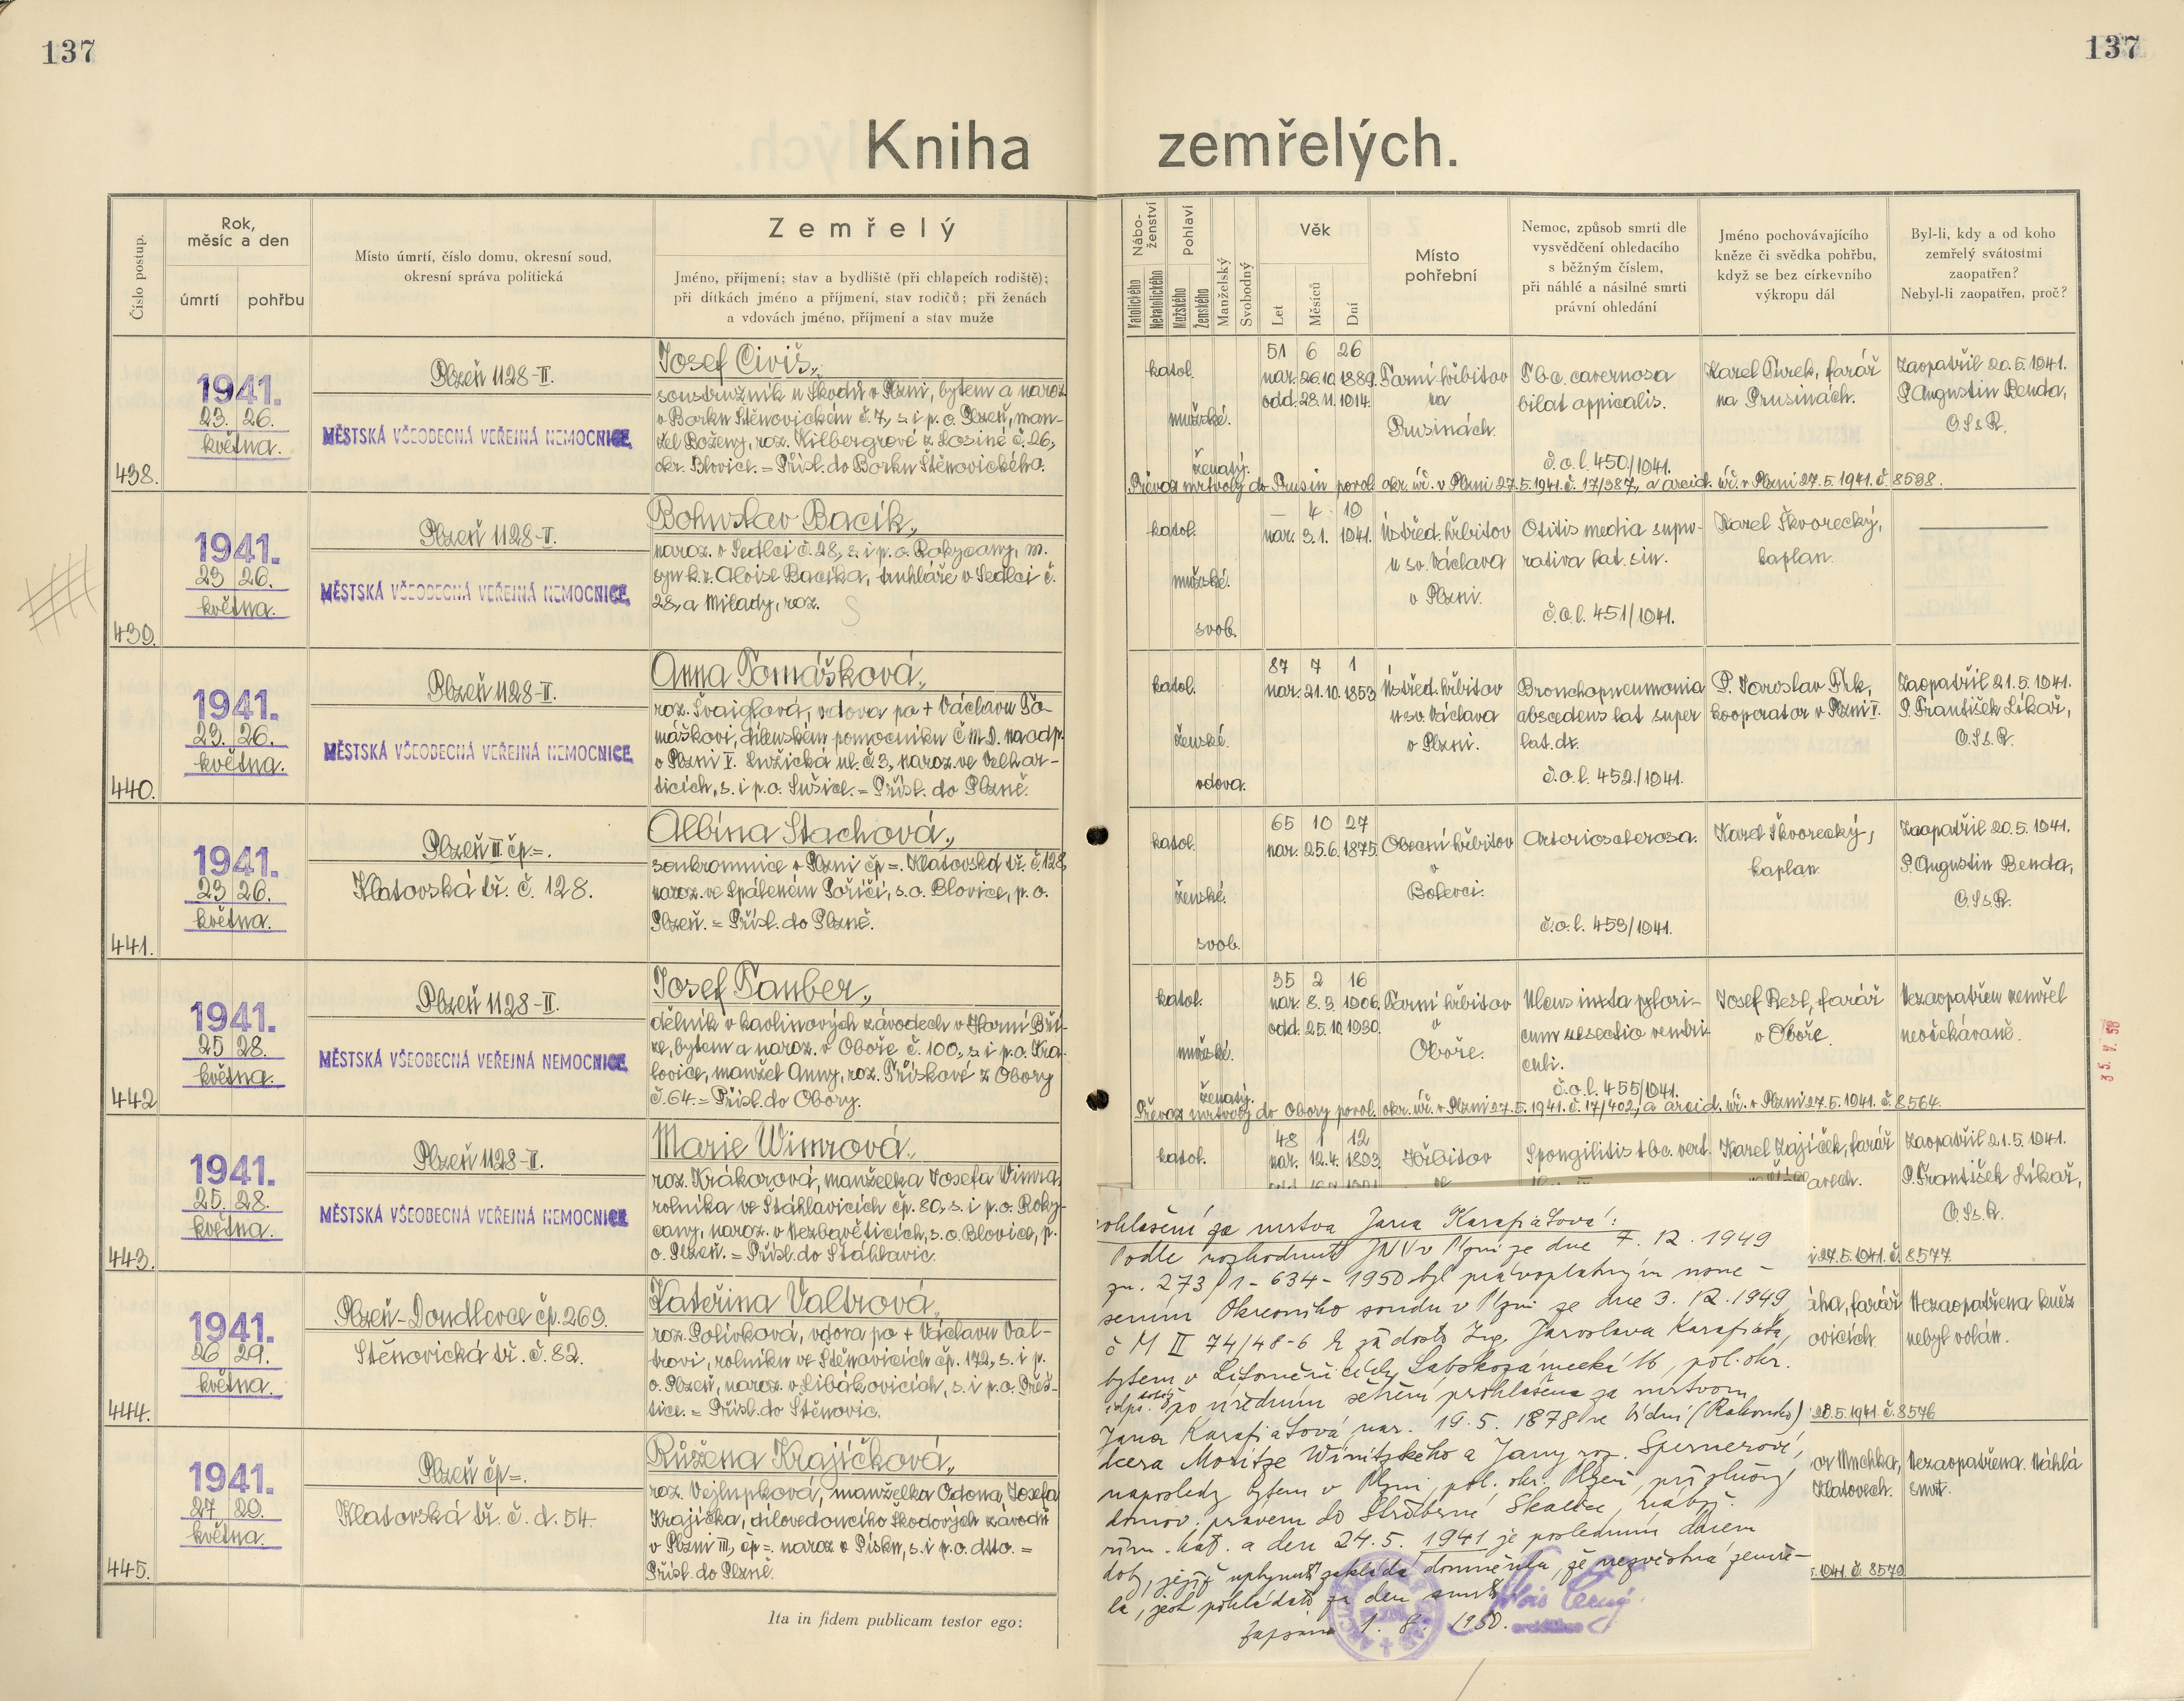 137
137
Kniha zemřelých.
Číslo postup.
Rok,
měsíc a den
úmrtí
pohřbu
Místo úmrtí, číslo domu, okresní soud,
okresní správa politická
Zemřelý
Jméno, příjmení; stav a bydliště (při chlapcích rodiště);
při dítkách jméno a příjmení, stav rodičů; při ženách
a vdovách jméno, příjmení a stav muže
Nábo-
ženství
Katolického
Nekatolického
Pohlaví
Mužského
Ženského
Manželský
Svobodný
Věk
Let
Měsíců
Dní
Místo
pohřební
Nemoc, způsob smrti dle
vysvědčení ohledacího
s běžným číslem,
při náhlé a násilné smrti
právní ohledání
Jméno pochovávajícího
kněze či svědka pohřbu,
když se bez církevního
výkropu dál
Byl-li, kdy a od koho
zemřelý svátostmi
zaopatřen?
Nebyl-li zaopatřen, proč?
438.
1941.
23. 26.
května.
Plzeň 1128-II.
MĚSTSKÁ VŠEOBECNÁ VEŘEJNÁ NEMOCNICE
Josef Civiš,
soustružník u Škodů v Plzni, bytem a naroz.
v Borku Štěnovickém č. 7, s. i p. o. Plzeň, man-
žel Boženy, roz. Kilbergrové z Losiné č. 26,
okr. Blovice. = Přísl. do Borku Štěnovického.
katol.
mužské.
ženatý.
51 6 26
nar. 26.10. 1889.
odd. 28. 11. 1914.
Farní hřbitov
na
Prusinách.
Tbc. cavernosa
bilat appicalis.
č. o. l. 450/1941.
Karel Turek, farář
na Prusinách.
Zaopatřil 20. 5. 1941.
P. Augustin Benda,
O. S. s. R.
Převoz mrtvoly do Prusin povol. okr. úř. v Plzni 27. 5. 1941. č. 17/387, a arcid. úř. v Plzni 27. 5. 1941. č. 8538.
439.
1941.
23 26.
května.
Plzeň 1128-II.
MĚSTSKÁ VŠEOBECNÁ VEŘEJNÁ NEMOCNICE
Bohuslav Bacík,
naroz. v Sedlci č. 28, s. i p. o. Rokycany, m.
syn k. z. Aloise Bacíka, truhláře v Sedlci č.
28, a Milady, roz.
katol.
mužské.
svob.
— 4 19
nar. 3. 1. 1941.
Ústřed. hřbitov
u sv. Václava
v Plzni.
Otitis media supu-
rativa lat. sin.
č. o. l. 451/1941.
Karel Škvorecký,
kaplan.
440.
1941.
23. 26.
května.
Plzeň 1128-II.
MĚSTSKÁ VŠEOBECNÁ VEŘEJNÁ NEMOCNICE
Anna Tomášková,
roz. Švaiglová, vdova po + Václavu To-
máškovi, dílenském pomocníku ČMD. na odp.
v Plzni I. Lužická ul. č. 3, naroz. ve Velhar-
ticích, s. i p. o. Sušice. = Přísl. do Plzně.
katol.
ženské.
vdova.
87 7 1
nar. 21. 10. 1853
Ústřed. hřbitov
u sv. Václava
v Plzni.
Bronchopneumonia
abscedens lat super
lat. dx.
č. o. l. 452/1941.
P. Jaroslav Frk,
kooperator v Plzni I.
Zaopatřil 21. 5. 1941.
P. František Líkař,
O. S. s. R.
441.
1941.
23 26.
května.
Plzeň III čp =.
Klatovská tř. č. 128.
Albína Stachová,
soukromnice v Plzni čp =. Klatovská tř. č. 128
naroz. ve Spáleném Poříčí, s. o. Blovice, p. o.
Plzeň. = Přísl. do Plzně.
katol.
ženské.
svob.
65 10 27
nar. 25. 6. 1875.
Obecní hřbitov
v
Bolevci.
Arteriosclerosa.
č. o. l. 453/1941.
Karel Škvorecký,
kaplan.
Zaopatřil 20. 5. 1941.
P. Augustin Benda,
O. S. s. R.
442
1941.
25 28.
května.
Plzeň 1128-II.
MĚSTSKÁ VŠEOBECNÁ VEŘEJNÁ NEMOCNICE
Josef Tauber,
dělník v kaolinových závodech v Horní Bří-
ze, bytem a naroz. v Oboře č. 100, s. i p. o. Kra-
lovice, manžel Anny, roz. Přískové z Obory
č. 64. = Přísl. do Obory.
katol.
mužské.
ženatý.
35 2 16
nar. 8. 3. 1906.
odd. 25. 10. 1930.
Farní hřbitov
v
Oboře.
Ulcus iuxta pylori-
cum resectio ventri-
culi.
č. o. l. 455/1941.
Josef Resl, farář
v Oboře.
Nezaopatřen zemřel
neočekávaně.
Převoz mrtvoly do Obory povol. okr. úř. v Plzni 27. 5. 1941. č. 17/402, a arcid. úř. v Plzni 27. 5. 1941. č. 8564.
443.
1941.
25. 28.
května.
Plzeň 1128-II.
MĚSTSKÁ VŠEOBECNÁ VEŘEJNÁ NEMOCNICE
Marie Wimrová,
roz. Krákorová, manželka Josefa Wimra,
rolníka ve Šťáhlavicích čp. 80, s. i p. o. Roky-
cany, naroz. v Nezbavěticích, s. o. Blovice, p.
o. Plzeň. = Přísl. do Šťáhlavic.
katol.
48 1 12
nar. 12. 4. 1893
Hřbitov
Spongilitis tbc. vert.
Karel Zajíček, farář
avech.
Zaopatřil 21. 5. 1941.
P. František Líkař,
O. S. s. R.
i 27. 5. 1941. č. 8577
444.
1941.
26 29.
května.
Plzeň-Doudlevce čp. 269.
Stěnovická tř. č. 82.
Kateřina Valtrová,
roz. Polívková, vdova po + Václavu Val-
trovi, rolníku ve Štěnovicích čp. 172, s. i p.
o. Plzeň, naroz. v Libákovicích, s. i p. o. Přeš-
tice. = Přísl. do Štěnovic.
áha, farář
ovicích.
Nezaopatřena kněz
nebyl volán.
28. 5. 1941. č. 8576
445.
1941.
27 29.
května.
Plzeň čp =.
Klatovská tř. č. d. 54.
Růžena Krajíčková,
roz. Vejlupková, manželka Odona Josefa
Krajíčka, dílovedoucího Škodových závodů
v Plzni III, čp =. naroz v Písku, s. i p. o. dtto. =
Přísl. do Plzně.
or Muchka,
Klatovech.
Nezaopatřena. Náhlá
smrt.
. 1941. č. 8579
ohlášení za mrtva Jana Karafiátová:
Podle rozhodnutí JNV v Plzni ze dne 7. 12. 1949
zn. 273/1-634-1950 byl právoplatným none-
sením Okresního soudu v Plzni ze dne 3. 12. 1949,
č M II 74/48-6 k žádosti Ing. Jaroslava Karafiáta,
bytem v Litoměřicích, Labskozámecká 16, pol. okr.
po úředním šetření prohlášena za mrtvou
Jana Karafiátová nar. 19. 5. 1878 ve Vídni (Rakousko)
dcera Moritze Winitzkého a Jany roz. Spernerové,
naposledy bytem v Plzni, pol. okr. Plzeň, příslušný
domov. právem do Stříbrné Skalice, nábož.
řím. kat. a den 24. 5. 1941 je posledním dnem
doby, jejíž uplynutí zakládá domněnku, že nezvěstná zemře-
la, jest pokládati za den smrti.
Zapsáno 1. 8. 1950.
Alois Černý
Ita in fidem publicam testor ego: